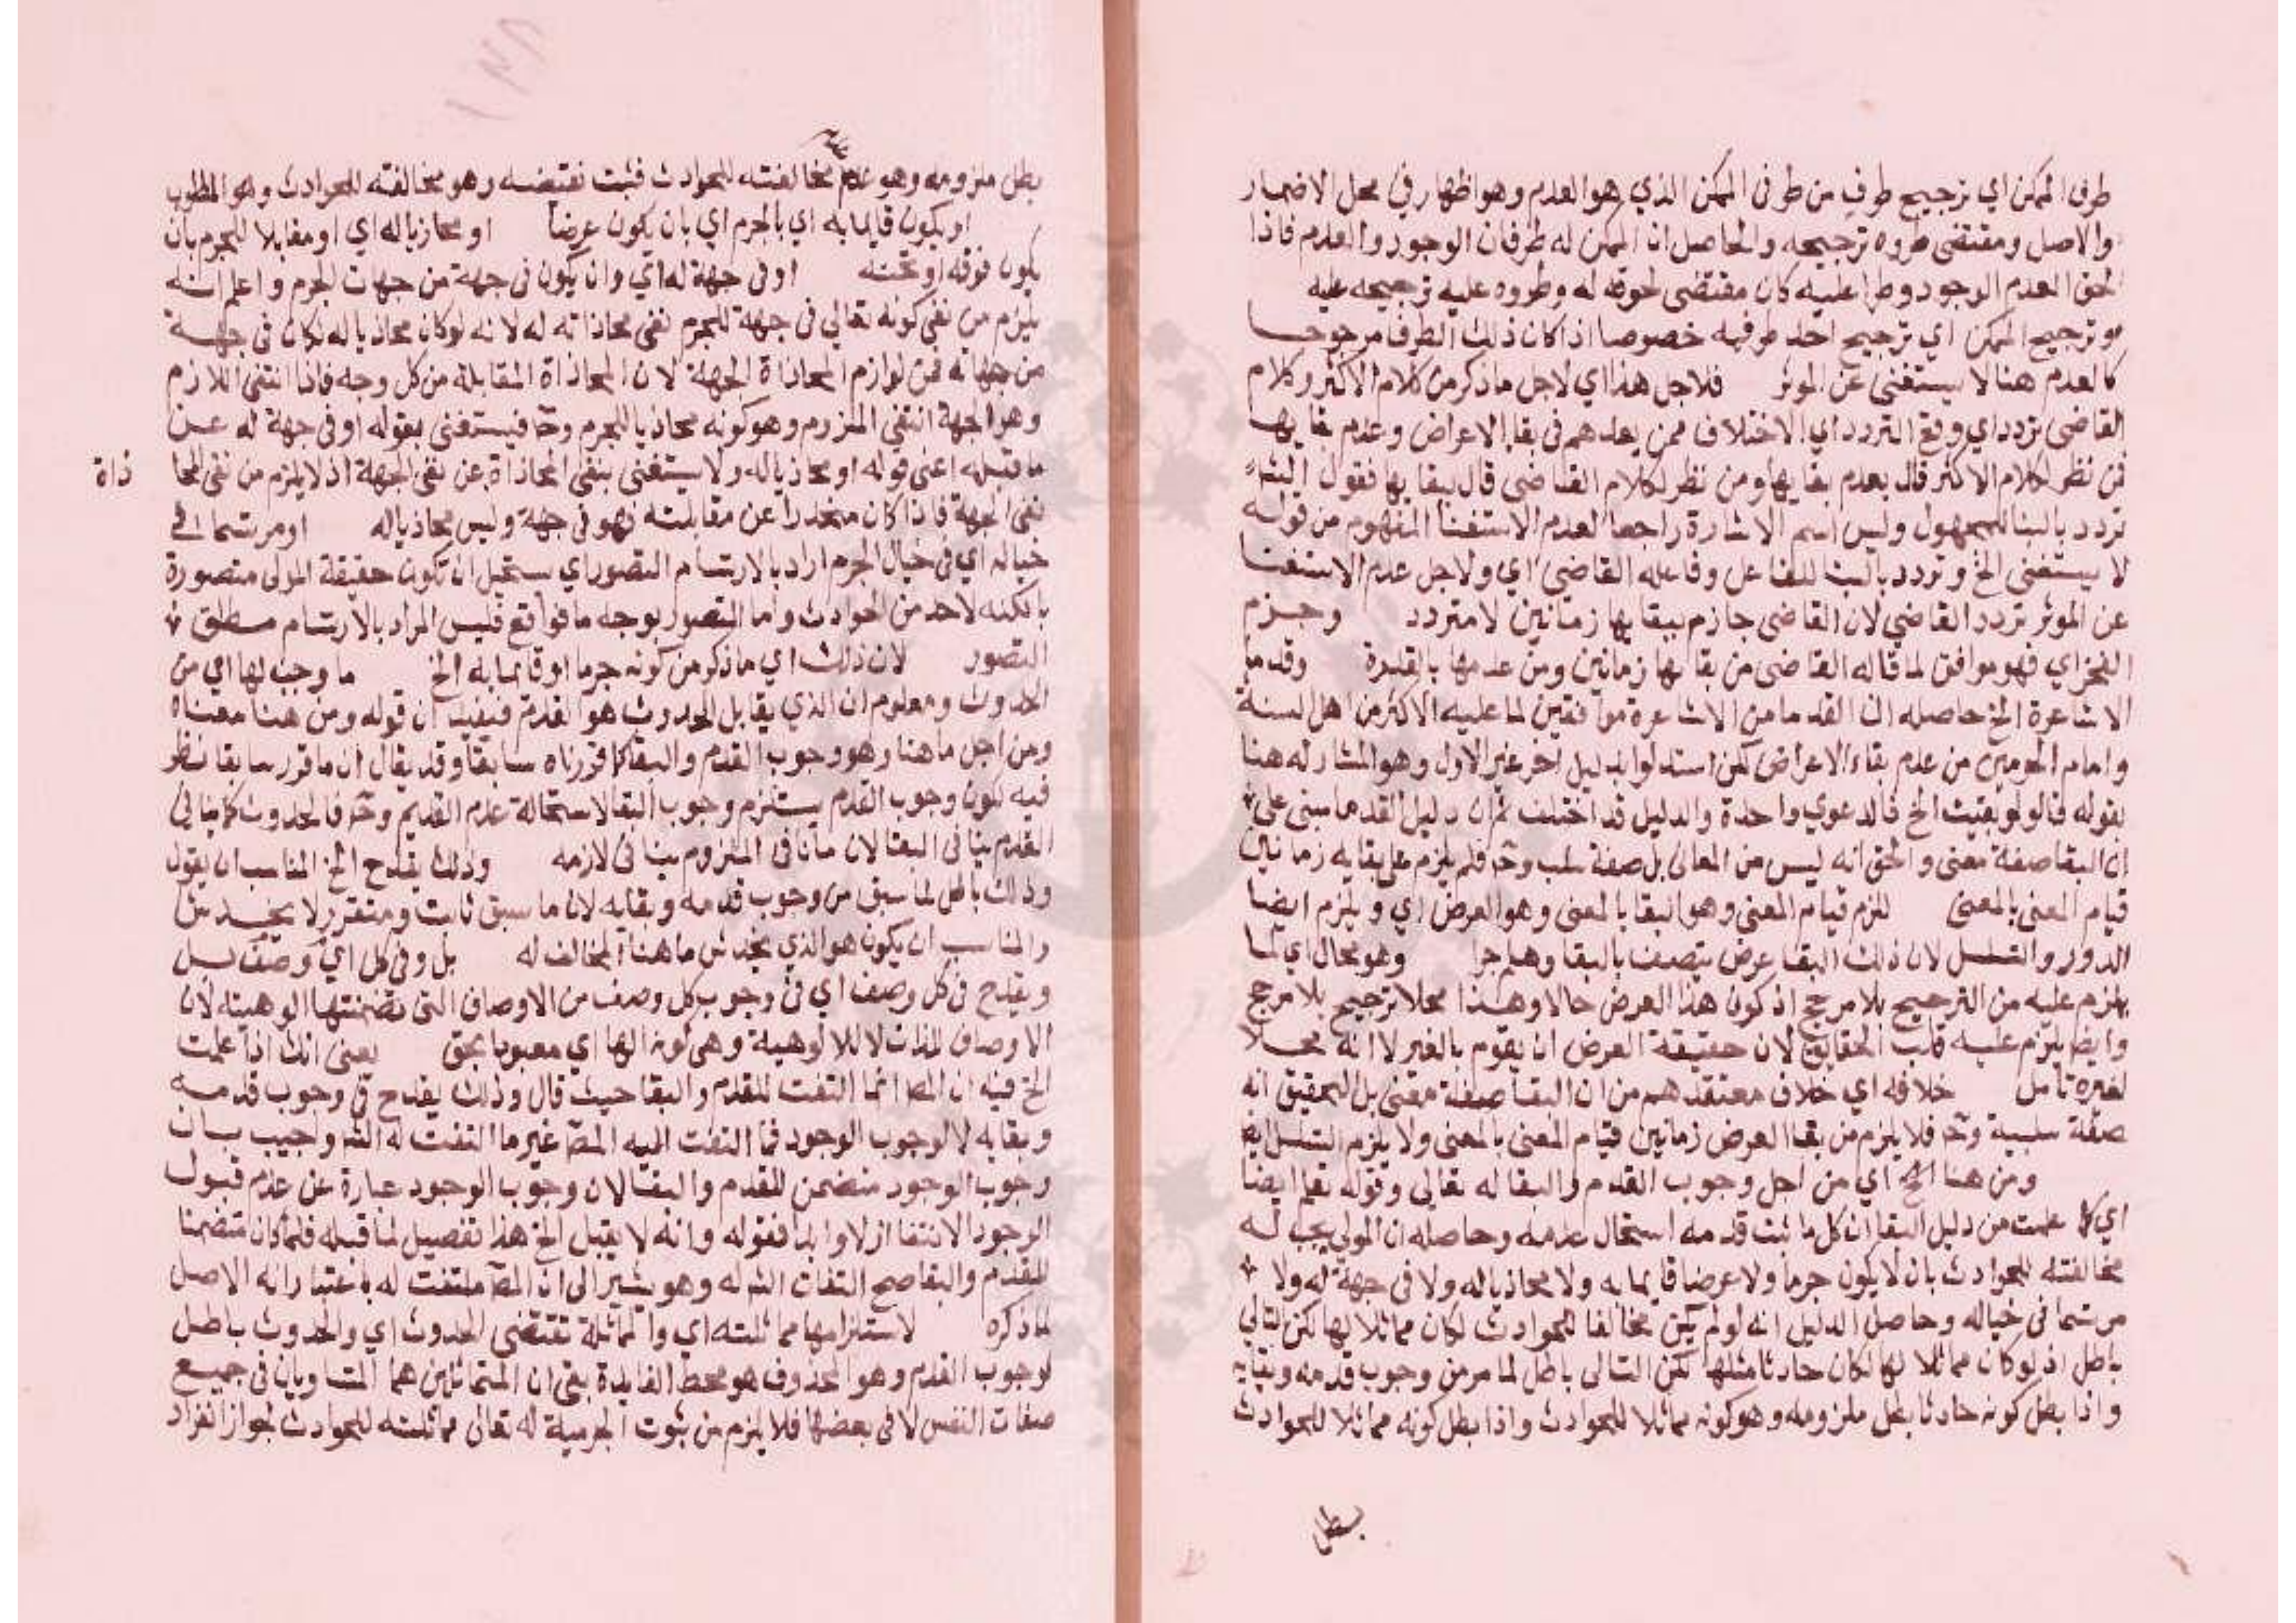 طرف الممكن اي ترجيح طرف من طرفى الممكن الذي هو العدم وهو اظهار في محل الاضمار
والاصل ومقتضى طروه ترجيحه والحاصل ان الممكن له طرفان الوجود والعدم فاذا
لحق العدم الوجود وطرا عليه كان مقتضى لحوقه له وطروه عليه ترجيحه عليه
وترجيح الممكن اي ترجيح احد طرفيه خصوصا اذا كان ذلك الطرف مرجوحا
كالعدم هنا لا يستغنى عن الموثر فلاجل هذا اي لاجل ما ذكر من كلام الاكثر وكلام
القاضى تردد اي وقع التردد اي الاختلاف ممن بعدهم فى بقا الاعراض وعدم بقايها
فمن نظر لكلام الاكثر قال بعدم بقايها ومن نظر لكلام القاضى قال ببقايها فقول الش
تردد بالبنا للمجهول وليس اسم الاشارة راجعا لعدم الاستغنا المفهوم من قوله
لا يستغنى الخ وتردد بالبنا للفاعل وفاعله القاضى اي ولاجل عدم الاستغنا
عن الموثر تردد القاضي لان القاضى جازم ببقايها زمانين لا متردد وجزم
الفخر اي فهو موافق لما قاله القاضى من بقايها زمانين ومن عدمها بالقدرة وقدما
الاشاعرة الخ حاصله ان القدما من الاشاعرة موافقين لما عليه الاكثر من اهل السنة
وامام الحرمين من عدم بقاء الاعراض لكن استدلوا بدليل اخر غير الاول وهو المشار له هنا
بقوله قالوا لو بقيت الخ فالدعوي واحدة والدليل قد اختلف ثم ان دليل القدما مبنى على
ان البقا صفة معنى والحق انه ليس من المعانى بل صفة سلب وح فلم يلزم على بقايه زمانين
قيام المعنى بالمعنى للزم قيام المعنى وهو البقا بالمعنى وهو العرض اي ويلزم ايضا
الدور والتسلسل لان ذلك البقا عرض يتصف بالبقا وهلم جرا وهو محال اي لما
يلزم عليه من الترجيح بلا مرجح اذ كون هذا العرض حالا وهذا محلا ترجيح بلا مرجح
وايضا يلزم عليه قلب الحقايق لان حقيقة العرض ان يقوم بالغير لا انه محلا
لغيره تامل خلافه اي خلاف معتقدهم من ان البقا صفة معنى بل التحقيق انه
صفة سلبية وح فلا يلزم من بقا العرض زمانين قيام المعنى بالمعنى ولا يلزم التسلسل ايض
ومن هنا الخ اي من اجل وجوب القدم والبقا له تعالى وقوله تعلم ايضا
اي كما علمت من دليل البقا ان كل ما ثبت قدمه استحال عدمه وحاصله ان المولى يجب له
مخالفته للحوادث بان لا يكون جرما ولا عرضا قايما به ولا محاذيا له ولا فى جهة له ولا
مرتسما فى خياله وحاصل الدليل انه لو لم يكن مخالفا للحوادث لكان مماثلا لها لكن التالي
باطل اذ لو كان مماثلا لها لكان حادثا مثلها لكن التالى باطل لما مر من وجوب قدمه وبقايه
واذا بطل كونه حادثا بطل ملزومه وهو كونه مماثلا للحوادث واذا بطل كونه مماثلا للحوادث
بطل
بطل ملزومه وهو عدم مخالفته للحوادث فثبت نقيضه وهو مخالفته للحوادث وهو المطلوب
او يكون قايما به اي بالجرم اي بان يكون عرضا او محازيا له اي او مقابلا للجرم بان
يكون فوقه او تحته او فى جهة له اي وان يكون فى جهة من جهات الجرم واعلم انه
يلزم من نفى كونه تعالى فى جهة للجرم نفى محاذاته له لانه لو كان محاذيا له لكان فى جهة
من جهاته فمن لوازم المحاذاة الجهة لان المحاذاة المقابلة من كل وجه فاذا انتفى اللازم
وهو الجهة انتفى الملزوم وهو كونه محاذيا للجرم وح فيستغنى بقوله او فى جهة له عن
ما قبله اعنى قوله او محاذيا له ولا يستغنى بنفى المحاذاة عن نفى الجهة اذ لا يلزم من نفى المحا
ذاة
نفى الجهة فاذا كان منحدرا عن مقابلته فهو فى جهة وليس محاذيا له او مرتسما في
خياله اي فى خيال الجرم اراد بالارتسام التصور اي يستحيل ان تكون حقيقة المولى متصورة
بالكنه لاحد من الحوادث واما التصور بوجه ما فواقع فليس المراد بالارتسام مطلق
التصور لان ذلك اي ما ذكر من كونه جرما او قايما به الخ ما وجب لها اي من
الحدوث ومعلوم ان الذي يقابل الحدوث هو القدم فيفيد ان قوله ومن هنا معناه
ومن اجل ما هنا وهو وجوب القدم والبقا كما قررناه سابقا وقد يقال ان ما قرر سابقا نظر
فيه لكون وجوب القدم يستلزم وجوب البقا لاستحالة عدم القديم وح فالحدوث كما ينافى
القدم ينافى البقا لان ما نافى الملزوم ينافى لازمه وذلك يقدح الخ المناسب ان يقول
وذلك باطل لما سبق من وجوب قدمه وبقايه لان ما سبق ثابت ومتقرر لا يخدش
والمناسب ان يكون هو الذي يخدش ما هنا المخالف له بل وفى كل اي وصف بل
ويقدح فى كل وصف اي فى وجوب كل وصف من الاوصاف التى تضمنتها الوهيته لان
الاوصاف للذات لا للالوهية وهى كونه الها اي معبودا بحق يعنى انك اذا علمت
الخ فيه ان المص انما التفت للقدم والبقا حيث قال وذلك يقدح فى وجوب قدمه
وبقايه لا لوجوب الوجود فما التفت اليه المص غير ما التفت له الش واجيب بان
وجوب الوجود متضمن للقدم والبقا لان وجوب الوجود عبارة عن عدم قبول
الوجود الانتفا ازلا وابدا فقوله وانه لا يقبل الخ هذا تفصيل لما قبله فلما كان متضمنا
للقدم والبقا صح التفات الش له وهو يشير الى ان المص ملتفت له باعتبار انه الاصل
لما ذكره لاستلزامها مماثلته اي والمماثلة تقتضى الحدوث اي والحدوث باطل
لوجوب القدم وهو المحذوف هو محط الفايدة بقى ان المتماثلين هما المتساويان فى جميع
صفات النفس لا فى بعضها فلا يلزم من ثبوت الجرمية له تعالى مماثلته للحوادث لجواز انفراد